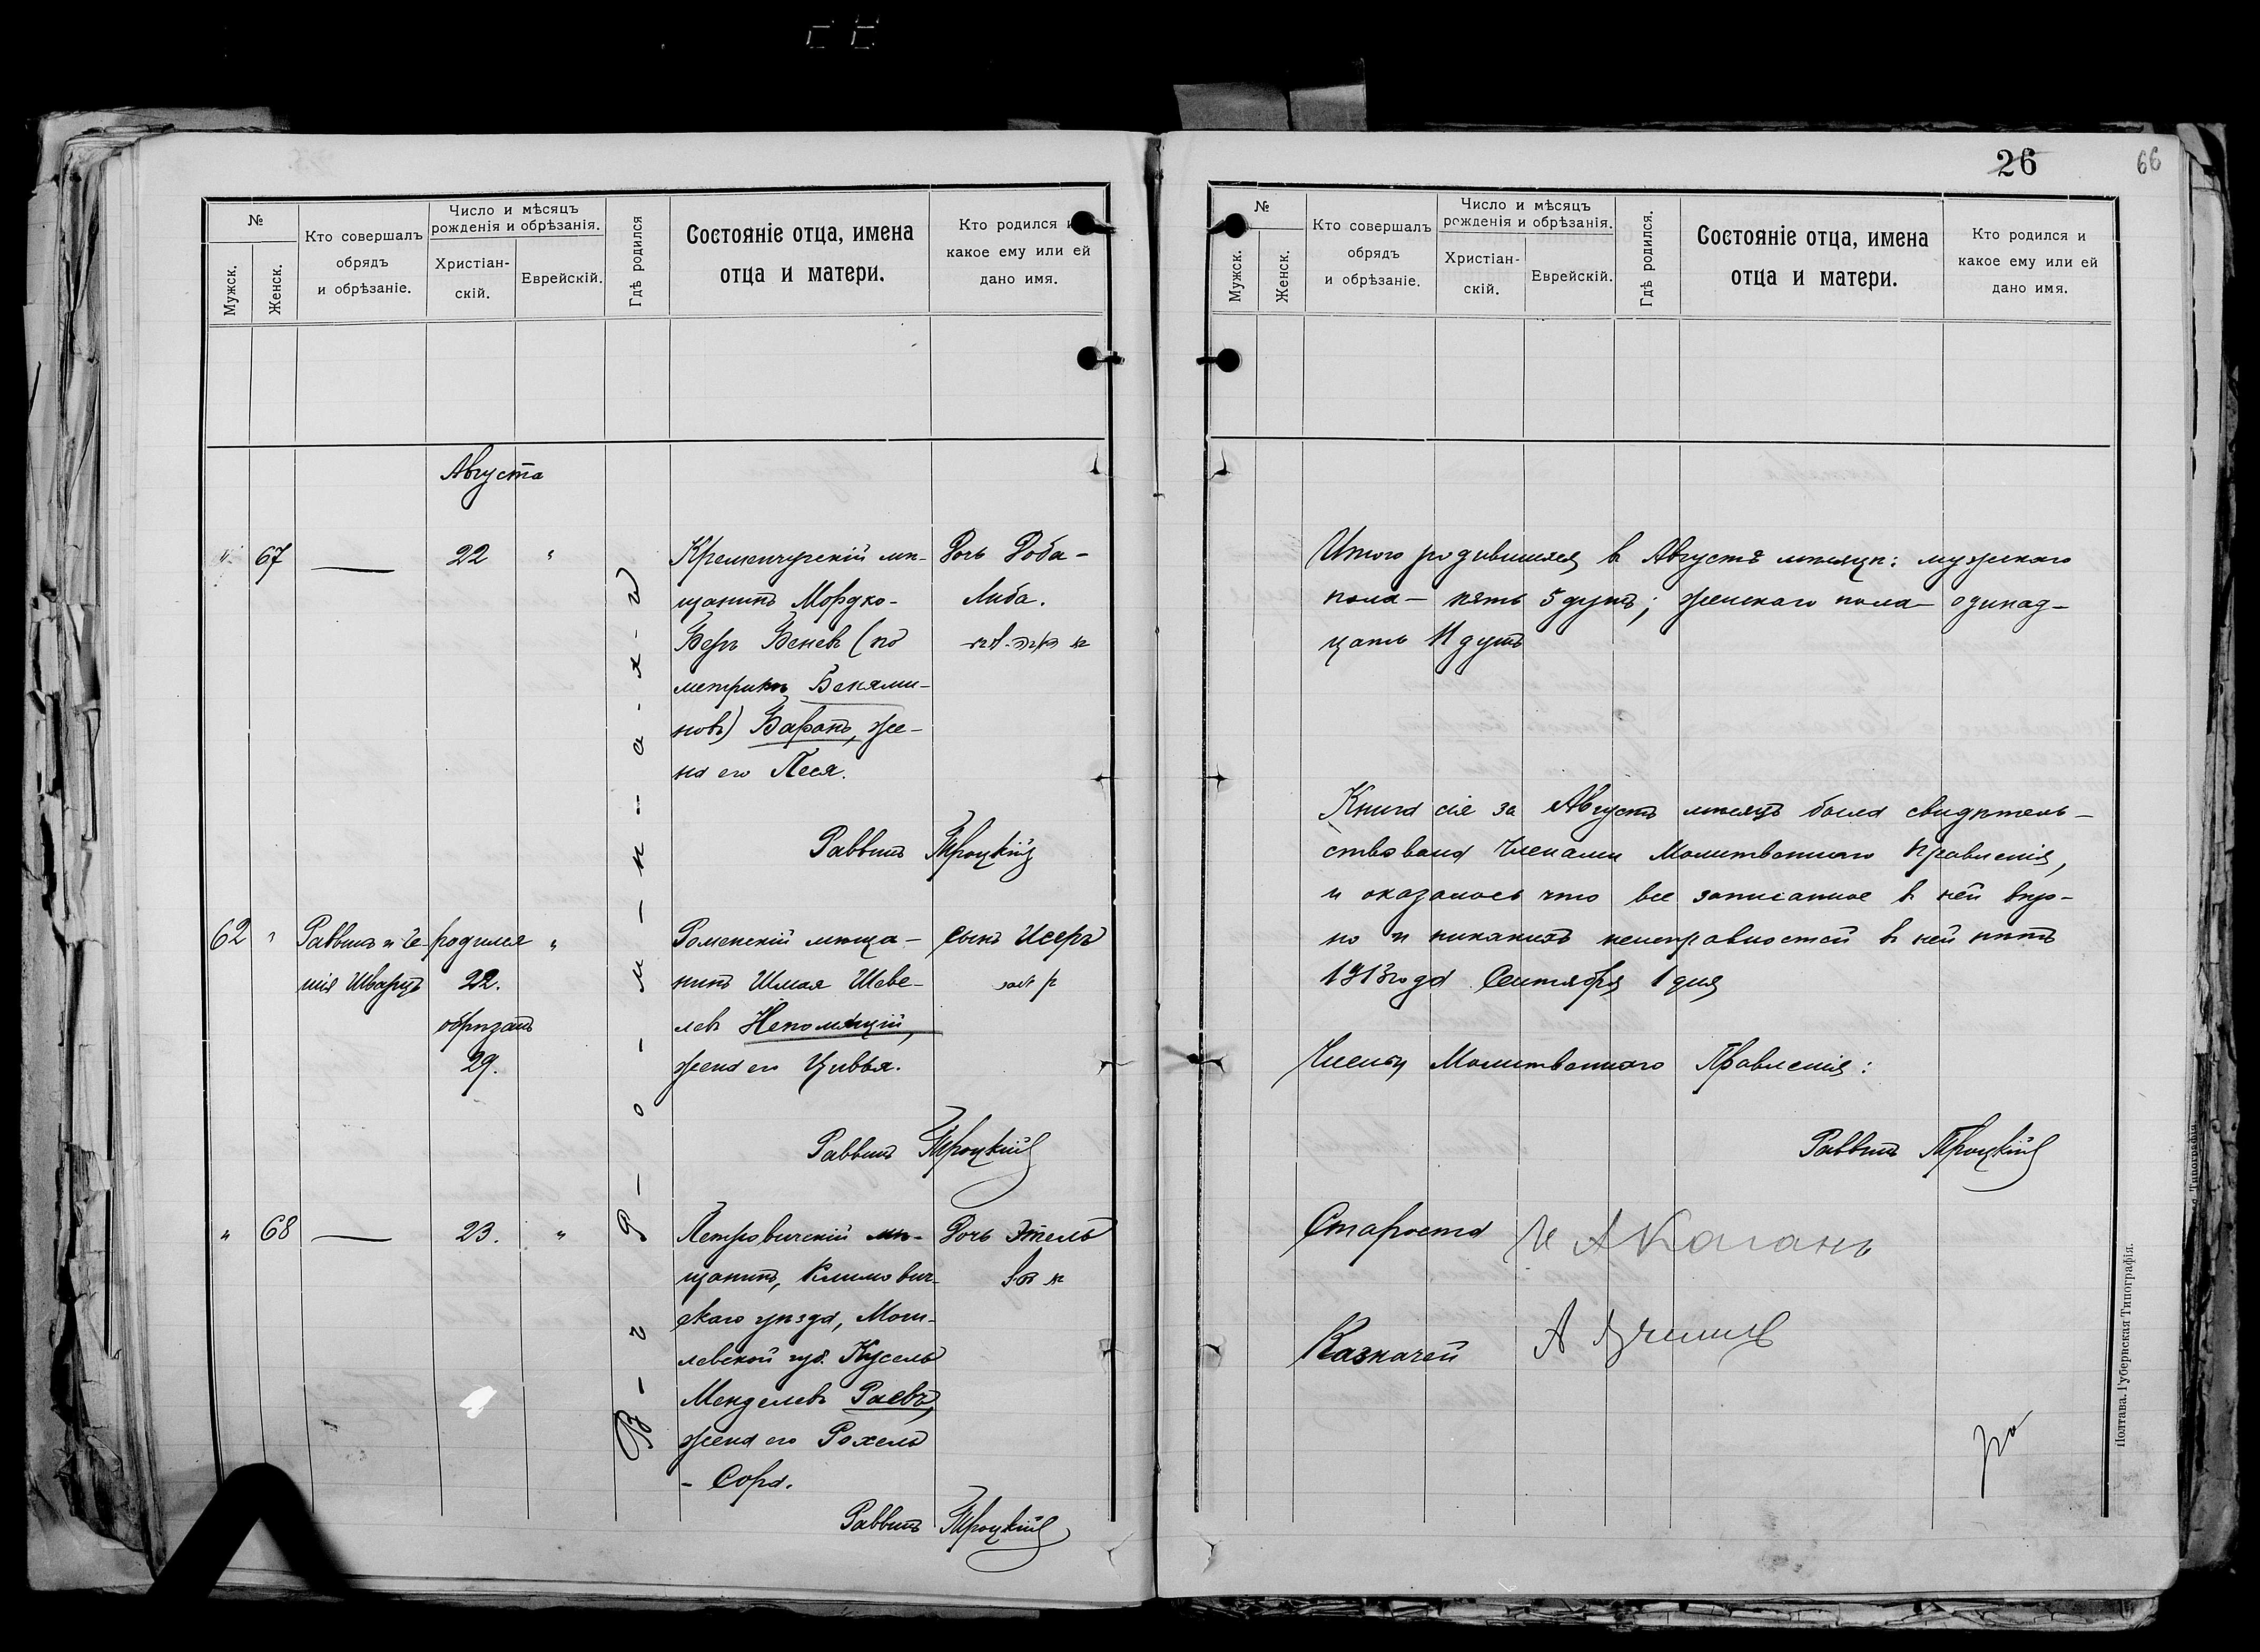 №
Мужск.
Женск.
Кто совершалъ
обрядъ
и обрѣзаніе.
Число и мѣсяцъ
рожденія и обрѣзанія.
Христіан-
скій.
Еврейскій.
Гдѣ родился
Состояніе отца, имена
отца и матери.
Кто родился и
какое ему или ей
дано имя.
Августа
67 — 22 "
Кременчугскій мѣ-
щанинъ Мордко-
Беръ Беневъ (по
метрикѣ Бенями-
новъ) Баранъ, же-
на его Песя.
Дочь Доба-
Либа.
Раввинъ Троцкій
62 "
Раввинъ и Ге-
шія Шварцъ
родился "
22.
обрѣзанъ
29.
Роменскій мѣща-
нинъ Шмая Шеве-
левъ Непомящій,
жена его Цивья.
Сынъ Исеръ
Раввинъ Троцкій
" 68 — 23. "
Петровичскій мѣ-
щанинъ, Климович-
скаго уѣзда, Моги-
левской губ. Кусель
Менделевъ Раевъ,
жена его Рохель
- Сора.
Дочь Этель
Раввинъ Троцкій
В - г - Р - о - м - н - а - х - ъ
26
66
№
Мужск.
Женск.
Кто совершалъ
обрядъ
и обрѣзаніе.
Число и мѣсяцъ
рожденія и обрѣзанія.
Христіан-
скій.
Еврейскій.
Гдѣ родился.
Состояніе отца, имена
отца и матери.
Кто родился и
какое ему или ей
дано имя.
Итого родившихся въ Августѣ мѣсяцѣ: мужскаго
пола — пять 5 душъ; женскаго пола — одинад-
цать 11 душъ
Книга сія за Августъ мѣсяцъ была свидѣтель-
ствована Членами Молитвеннаго Правленія,
и оказалось что все записанное въ ней вѣр-
но и никакихъ неисправностей въ ней нѣтъ
1913 года Сентября 1 дня
Члены Молитвеннаго Правленія:
Раввинъ Троцкій
Староста И А Каганъ
Казначей А
Полтава. Губернская Типографія.